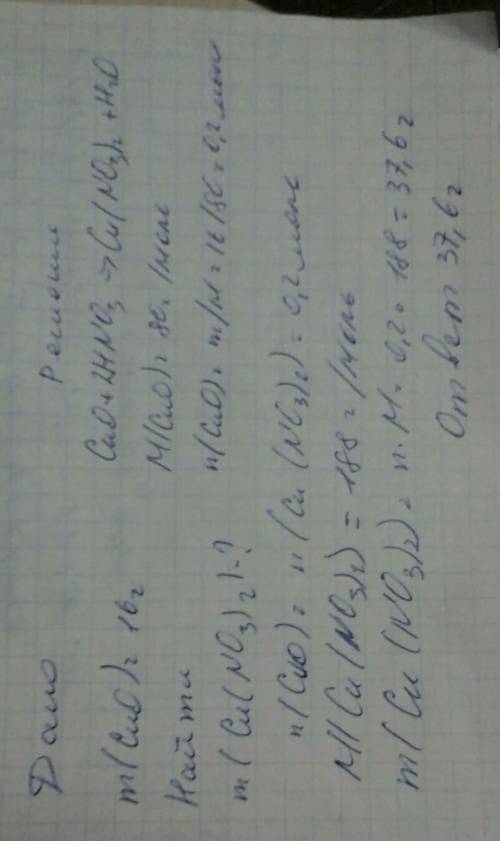 Дано
m(CuO)=16г
Найти
m(Cu(NO3)2)-?
Решение
CuO+2HNO3→Cu(NO3)2+H2O
M(CuO)=80г/моль
n(CuO)=m/M=16/80=0,2моль
n(CuO)=n(Cu(NO3)2)=0,2моль
M(Cu(NO3)2)=188г/моль
m(Cu(NO3)2)=n·M=0,2·188=37,6г
Ответ 37,6г